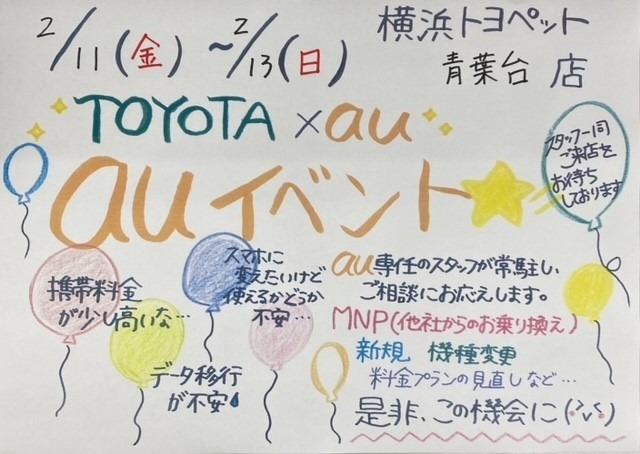 2/11(金)~2/13(日)
横浜トヨペット
青葉台 店
TOYOTA×au
auイベント
スタッフ一同
ご来店を
お待ち
しております
携帯料金
が少し高いな…
スマホに
変えたいけど
使えるかどうか
不安…
データ移行
が不安
au専任のスタッフが常駐し、
ご相談にお応えします。
MNP(他社からのお乗り換え)
新規 機種変更
料金プランの見直しなど…
是非、この機会に(^v^)